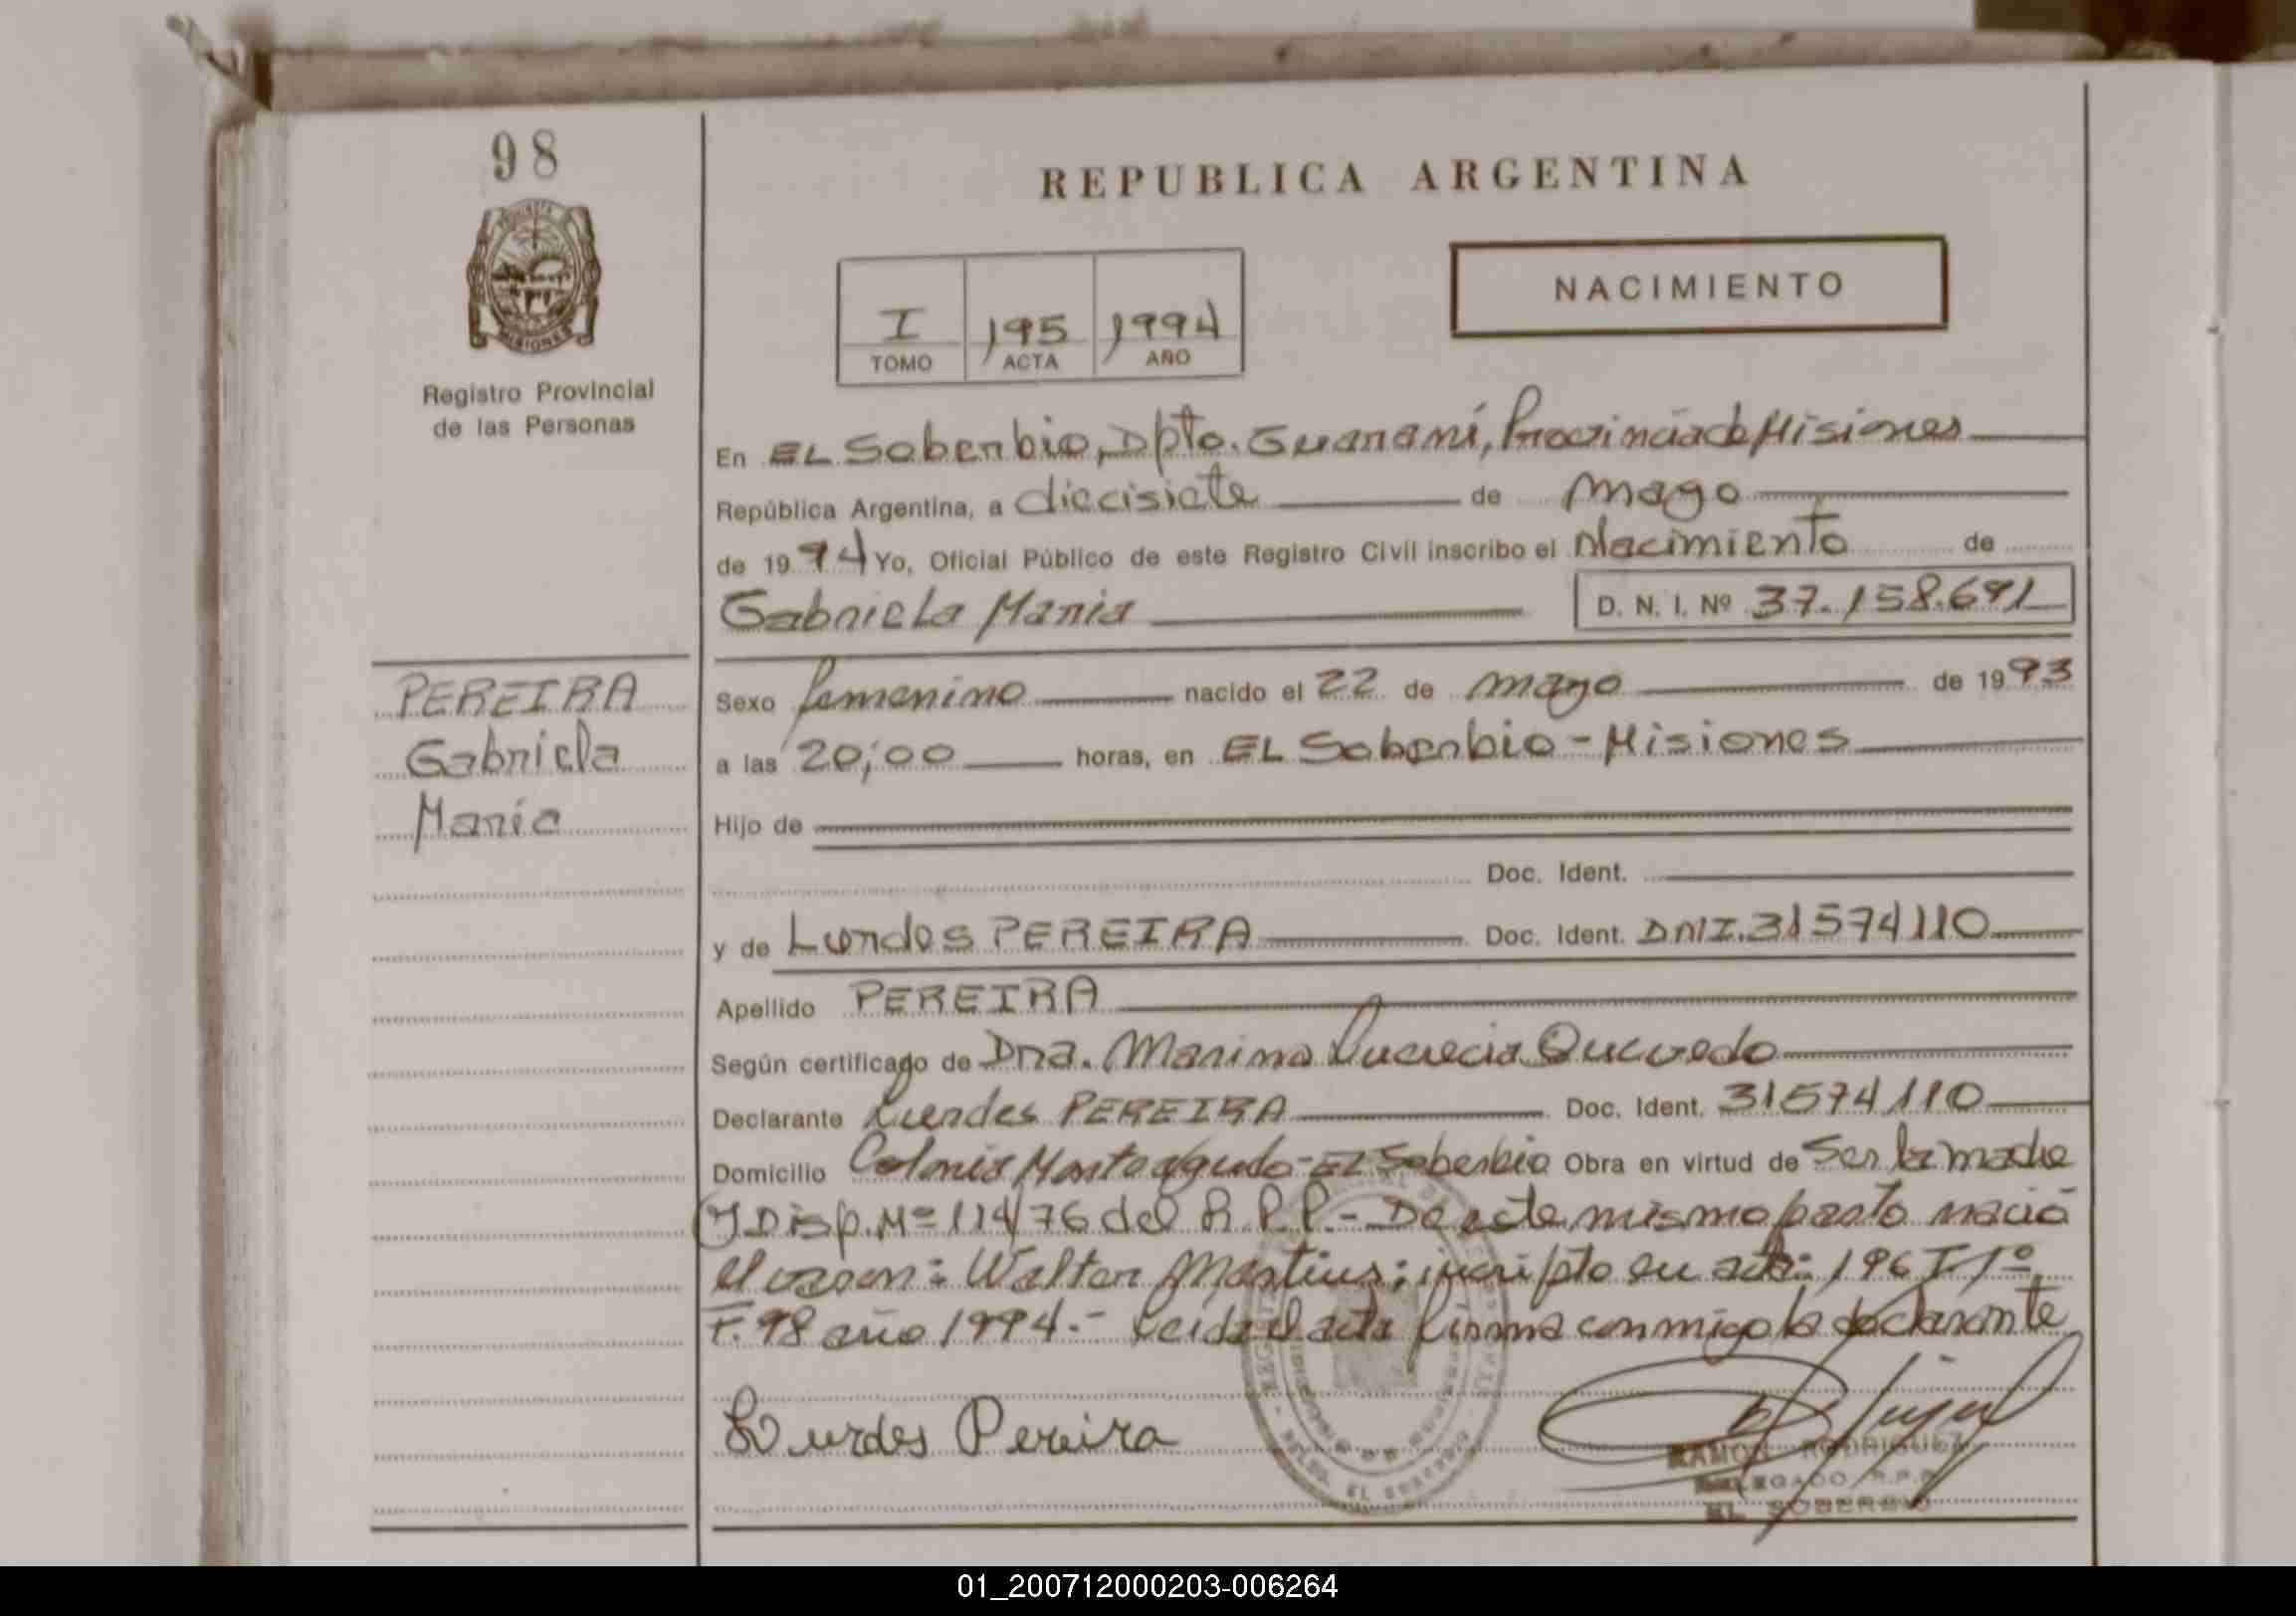 98
REPUBLICA ARGENTINA
NACIMIENTO
I 195 1994
TOMO ACTA AÑO
Registro Provincial
de las Personas
En EL Soberbio, Dpto. Guaraní, Provincia de Misiones
República Argentina, a diecisiete de mayo
de 1994 Yo, Oficial Público de este Registro Civil inscribo el Nacimiento de
Gabriela Maria D. N. I. Nº 37.158.691
PEREIRA
Gabriela
María
Sexo femenino nacido el 22 de mayo de 1993
a las 20;00 horas, en EL Soberbio - Misiones
Hijo de
Doc. Ident.
y de Lurdes PEREIRA Doc. Ident. DNI. 31574110
Apellido PEREIRA
Según certificado de Dra. Marina Lucrecia Quevedo
Declarante Lurdes PEREIRA Doc. Ident. 31574110
Domicilio Colonia Monteagudo - EL Soberbio Obra en virtud de Ser la madre
y Disp. Nº 114/76 del R.P.P. - De este mismo parto nació
el varon: Walter Martins; incripto en acta: 196 T. 1º
F. 98 año 1994. - Leida el acta firma conmigo la declarante
Lurdes Pereira
RAMON RODRIGUEZ
DELEGADO R.P.P.
EL SOBERBIO
01_200712000203-006264